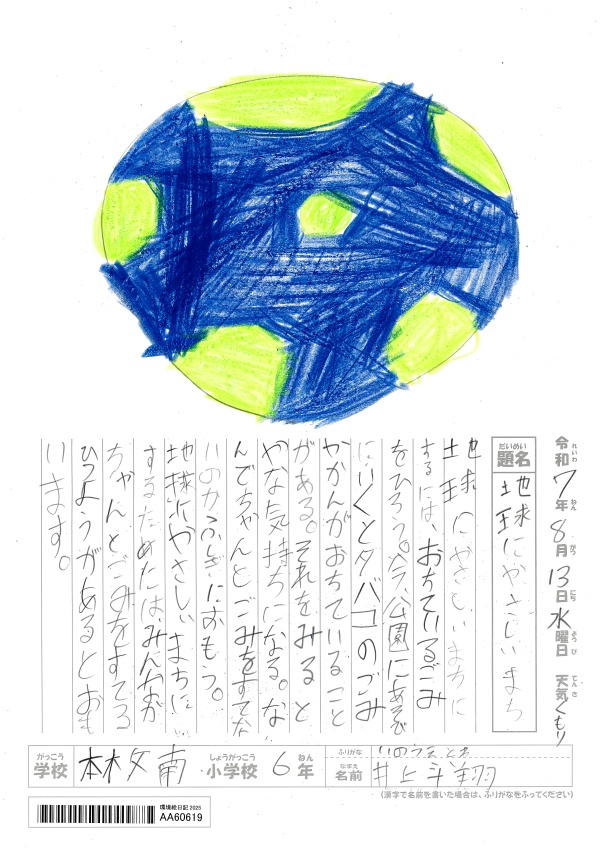 令和7年8月13日水曜日 天気くもり
れいわ ねん がつ にち ようび てんき
だいめい
題名 地球にやさしいまち
地球にやさしいまちに
するには、おちているごみ
をひろう。今、公園にあそび
にいくとタバコのごみ
やかんがおちていること
がある。それをみると
やな気持ちになる。な
んでちゃんとごみをすてな
いのかふしぎにおもう。
地球にやさしいまちに
するためには、みんなが
ちゃんとごみをすてる
ひつようがあるとおも
います。
がっこう しょうがっこう ねん
学校 南 小学校 6年
ふりがな いのうえ とあ
なまえ
名前 井上斗翔
(漢字で名前を書いた場合は、ふりがなをふってください)
環境絵日記 2025
AA60619